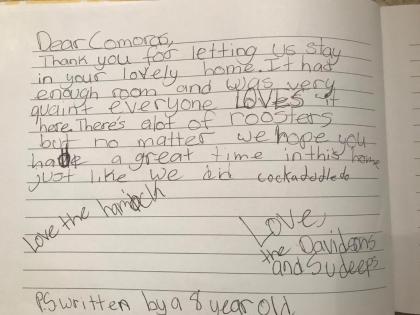 Dear Comoros,
Thank you for letting us stay
in your lovely home. It had
enough room and was very
quaint everyone loves it
here. There's alot of roosters
but no matter we hope you
hade a great time in this home
just like we did cockadoodledo
Love the hamock
Love,
the Davidsons
and Sudeeps
P.S written by a 8 year old.